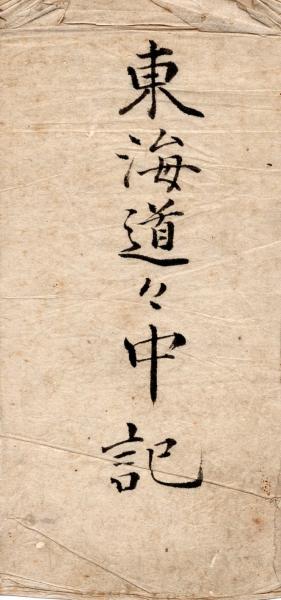 東海道々中記